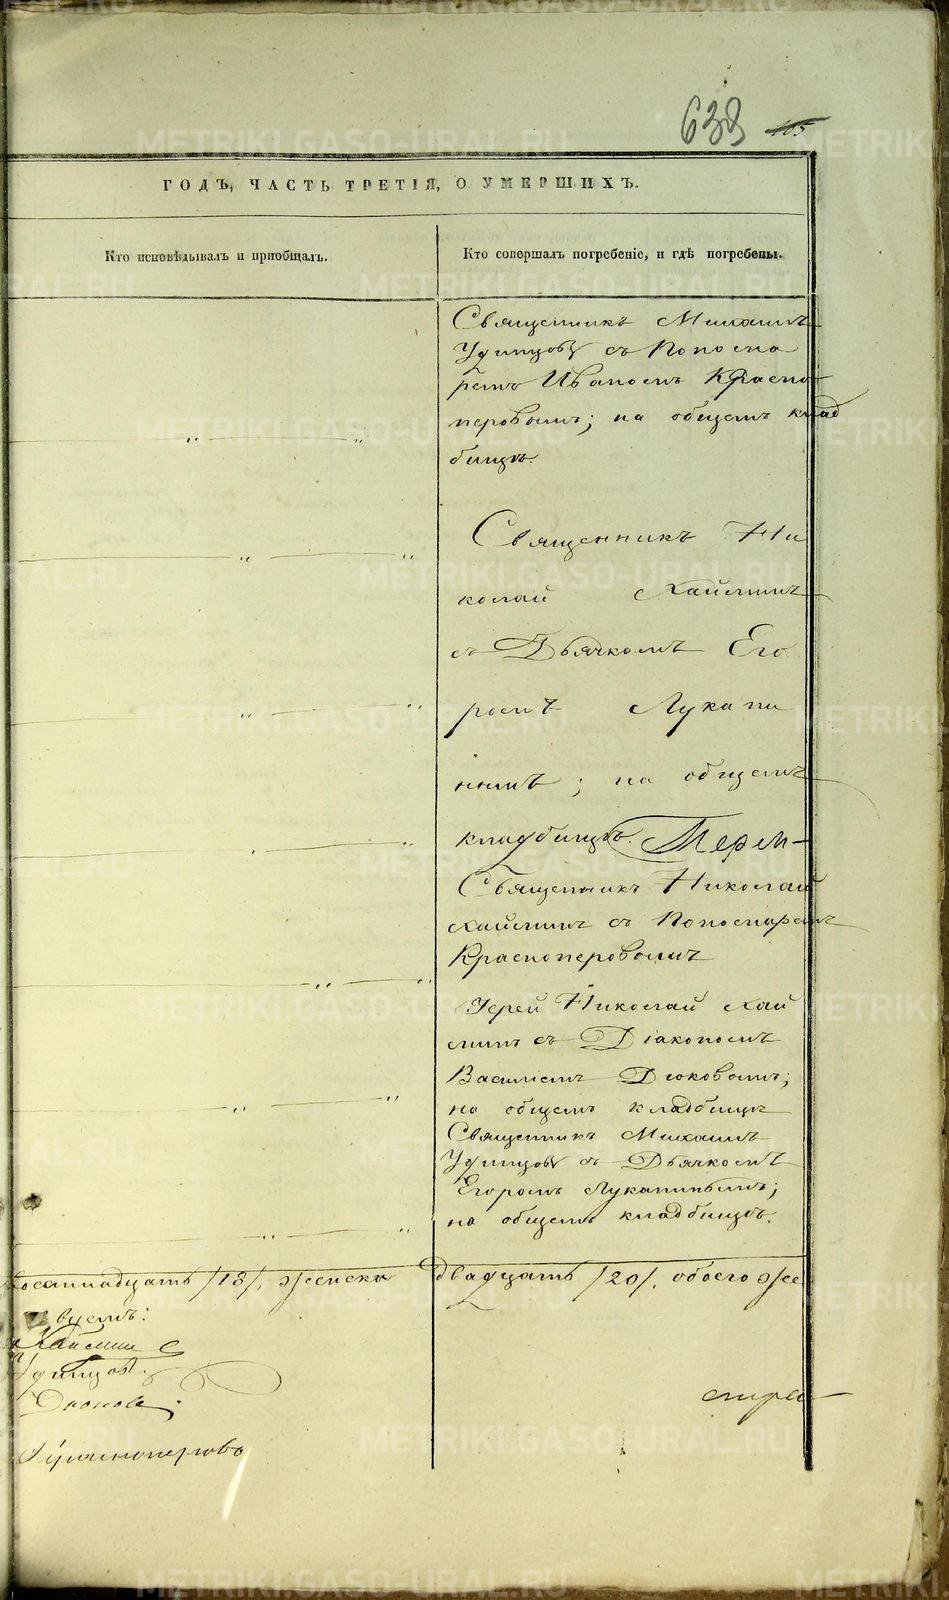 639 105
ГОДЪ, ЧАСТЬ ТРЕТІЯ, О УМЕРШИХЪ.
Кто исповѣдывалъ и пріобщалъ.
Кто совершалъ погребеніе, и гдѣ погребены.
Священникъ Михаилъ
Удинцовъ съ Поnома
ремъ Иваномъ Красно
перовымъ; на общемъ клад
бищѣ.
Священникъ Ни
колай Хаймин
съ Дьячкомъ Его
ромъ Лукани
нымъ; на общемъ
кладбищѣ.
Священникъ Николай
Хайминъ съ Пономаремъ
Красноперовымъ
Іерей Николай Хай
минъ съ Діакономъ
Василіемъ Дюковымъ;
на общемъ кладбищѣ
Священникъ Михаилъ
Удинцовъ съ Дьячкомъ
Егоромъ Луканинымъ;
на общемъ кладбищѣ.
восемнадцать /18/, женска
двадцать /20/. обоего же
Хаймин
Удинцовъ.
Дюковъ
Красноперовъ
METRIKI.GASO-URAL.RU